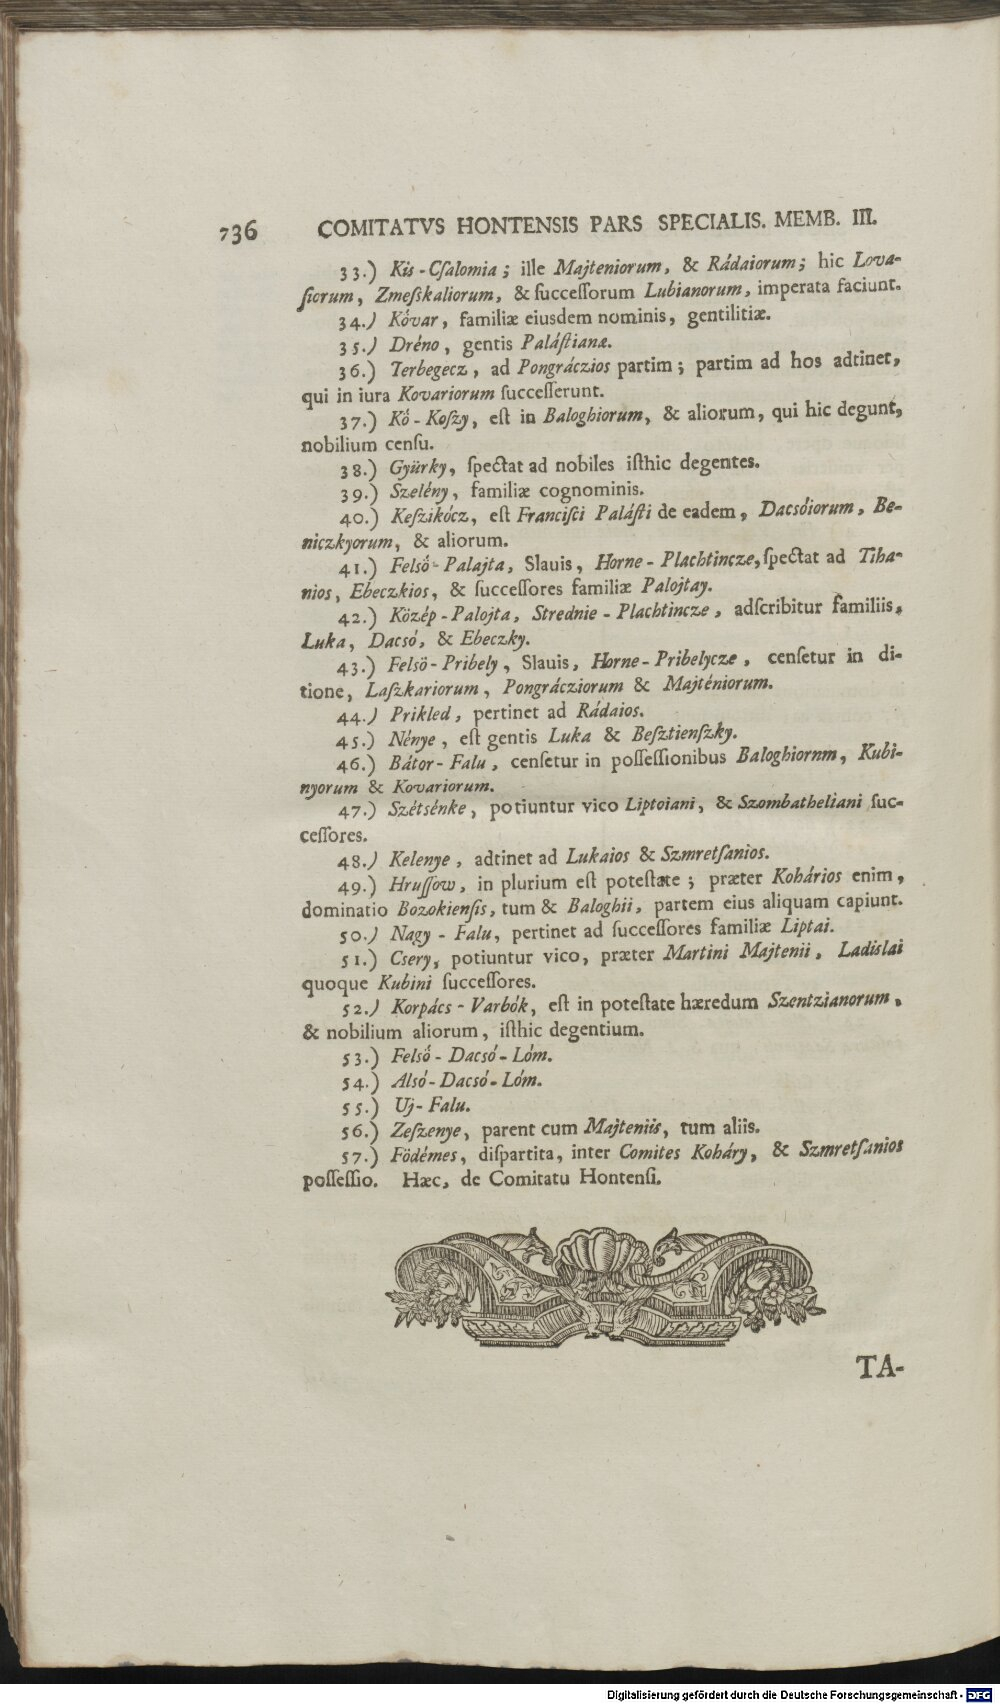 736 COMITATVS HONTENSIS PARS SPECIALIS. MEMB. III.
33.) Kis-Cſalomia; ille Majteniorum, & Rádaiorum; hic Lova-
ſiorum, Zmeſskaliorum, & ſucceſſorum Lubianorum, imperata faciunt.
34.) Kővar, familiæ eiusdem nominis, gentilitiæ.
35.) Dréno, gentis Paláſtianæ.
36.) Terbegecz, ad Pongráczios partim; partim ad hos adtinet,
qui in iura Kovariorum ſucceſſerunt.
37.) Kő-Koſzy, eſt in Baloghiorum, & aliorum, qui hic degunt,
nobilium cenſu.
38.) Gyürky, ſpectat ad nobiles iſthic degentes.
39.) Szelény, familiæ cognominis.
40.) Keſzikócz, eſt Franciſci Paláſti de eadem, Dacsóiorum, Be-
niczkyorum, & aliorum.
41.) Felső-Palajta, Slauis, Horne-Plachtincze, ſpectat ad Tiha-
nios, Ebeczkios, & ſucceſſores familiæ Palojtay.
42.) Közép-Palojta, Strednie-Plachtincze, adſcribitur familiis,
Luka, Dacsó, & Ebeczky.
43.) Felsö-Pribely, Slauis, Horne-Pribelycze, cenſetur in di-
tione, Laſzkariorum, Pongrácziorum & Majténiorum.
44.) Prikled, pertinet ad Rádaios.
45.) Nénye, eſt gentis Luka & Beſztienſzky.
46.) Bátor-Falu, cenſetur in poſſeſſionibus Baloghiornm, Kubi-
nyorum & Kovariorum.
47.) Szétsénke, potiuntur vico Liptoiani, & Szombatheliani ſuc-
ceſſores.
48.) Kelenye, adtinet ad Lukaios & Szmretſanios.
49.) Hruſſow, in plurium eſt poteſtate; præter Kohários enim,
dominatio Bozokienſis, tum & Baloghii, partem eius aliquam capiunt.
50.) Nagy-Falu, pertinet ad ſucceſſores familiæ Liptai.
51.) Csery, potiuntur vico, præter Martini Majtenii, Ladislai
quoque Kubini ſucceſſores.
52.) Korpács-Varbók, eſt in poteſtate hæredum Szentzianorum,
& nobilium aliorum, iſthic degentium.
53.) Felső-Dacsó-Lóm.
54.) Alsó-Dacsó-Lóm.
55.) Uj-Falu.
56.) Zeſzenye, parent cum Majteniis, tum aliis.
57.) Födémes, diſpartita, inter Comites Koháry, & Szmretſanios
poſſeſſio. Hæc, de Comitatu Hontenſi.
TA-
Digitalisierung gefördert durch die Deutsche Forschungsgemeinschaft - DFG